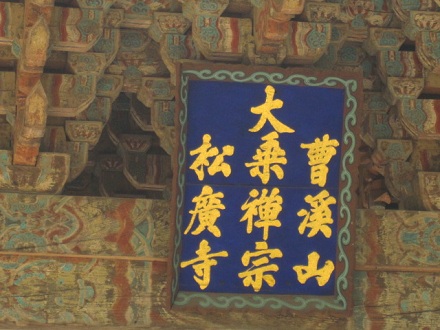 曹溪山
大乗禅宗
松廣寺